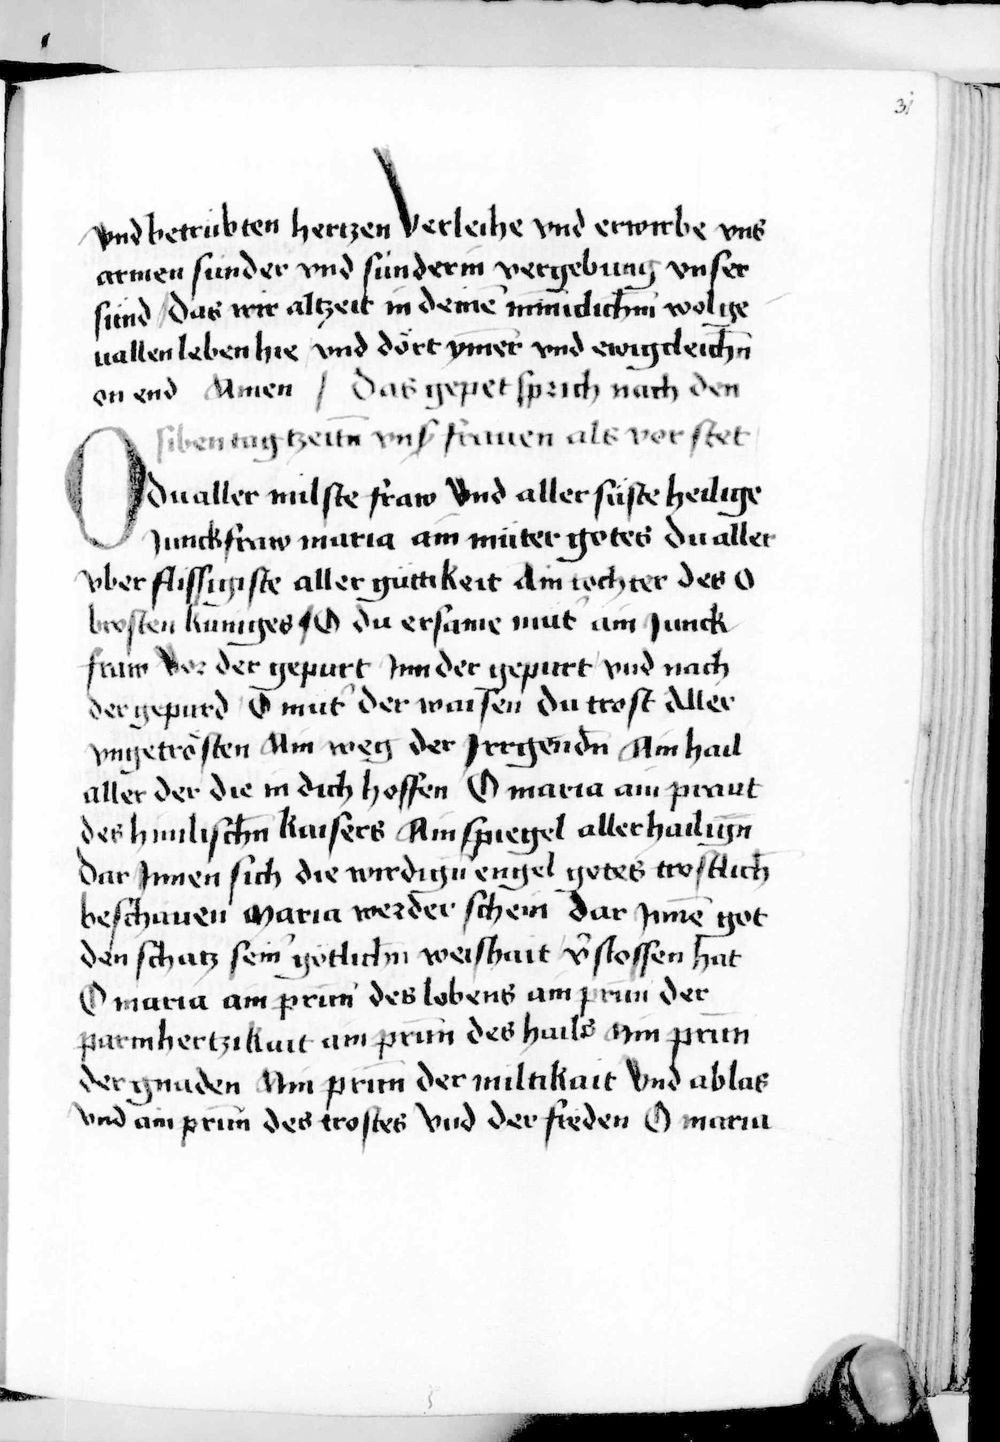 31
vnd betrübten hertzen Verleihe vnd erwirbe vns
armen sünder vnd sünderin vergebung vnser
sünd / das wir altzeit in deinē mīnīclichm̄ wolge
uallen leben hie / vnd dört ym̄er vnd ewigcleichn̄
on end Amen / Das gepet sprich nach den
siben tagtzeitn̄ vnß frauen als vor stet
O du aller milste fraw Vnd aller süste heilige
Junckfraw maria ain müter gotes du aller
vber flissigiste aller güttikeit Ain tochter des O
brosten küniges / O du ersame müt' ain Junck
fraw Vor der gepurt Inn der gepurt / vnd nach
der gepurd / O müt' der waisen du trost Aller
vngetrösten Ain weg der Irrgendn̄ Ain hail
aller der die in dich hoffen O maria ain praut
des himlischn̄ kaisers Ain spiegel aller hailign̄
Dar Innen sich die wirdign̄ engel gotes trostlich
beschauen Maria werder schein Dar Inn̄e got
den schatz sein' götlichn̄ weishait v̄slossen hat
O maria ain prūn des lebens ain prūn der
parmhertzikait ain prūn des hails Ain prūn
der gnaden Ain prūn der miltikait Vnd ablas
vnd ain prūn des trostes Vnd der freden O maria